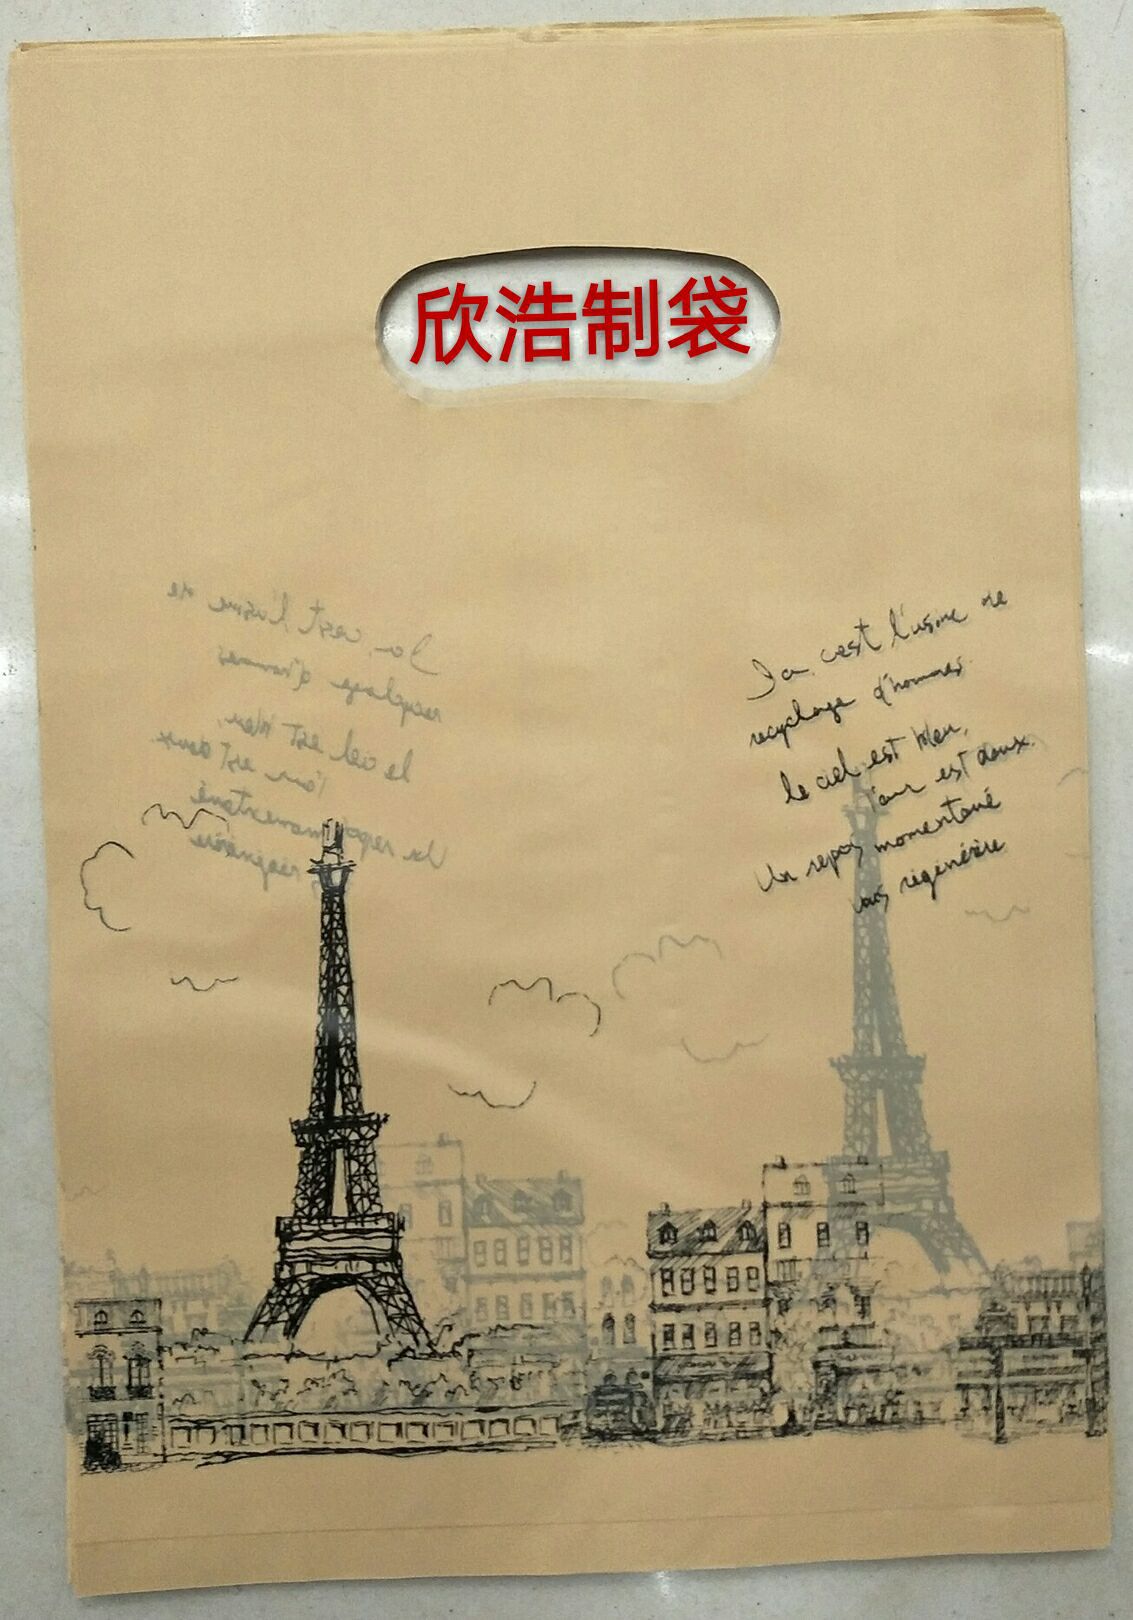 欣浩制袋
Ia, c'est l'usine de
recyclage d'hommes
le ciel est bleu,
l'air est doux.
Un repos momentané
vous régénère